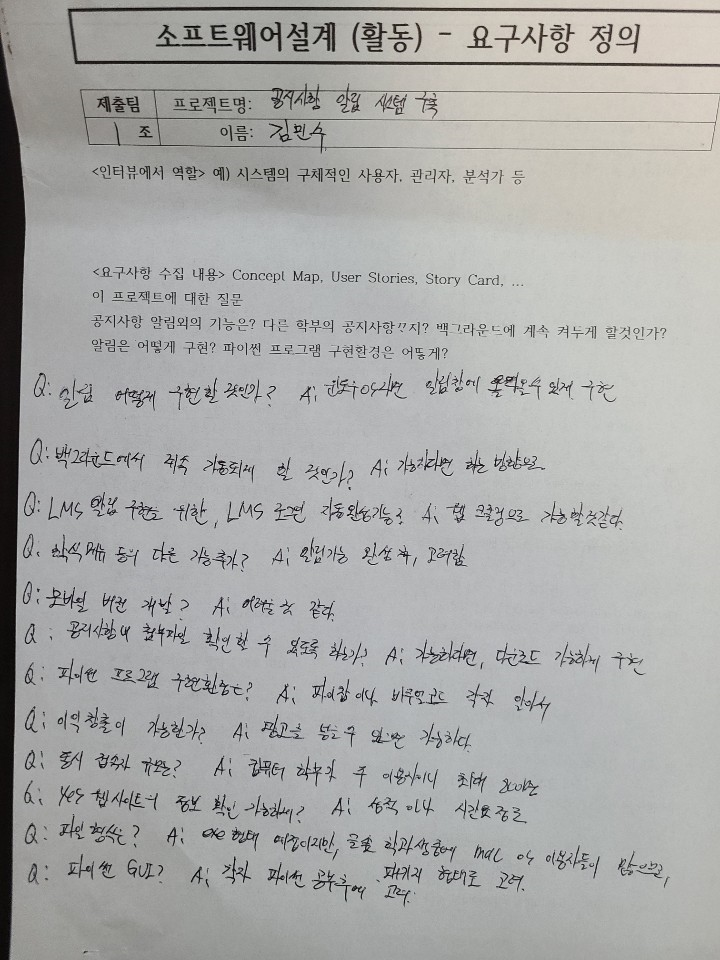 소프트웨어설계 (활동) - 요구사항 정의
제출팀 프로젝트명: 공지사항 알림 시스템 구축
1 조 이름: 김민수
<인터뷰에서 역할> 예) 시스템의 구체적인 사용자, 관리자, 분석가 등
<요구사항 수집 내용> Concept Map, User Stories, Story Card, ...
이 프로젝트에 대한 질문
공지사항 알림외의 기능은? 다른 학부의 공지사항까지? 백그라운드에 계속 켜두게 할것인가?
알림은 어떻게 구현? 파이썬 프로그램 구현환경은 어떻게?
Q: 알림 어떻게 구현할 것인가? A: 윈도우 OS라면 알림창에 올 수 있게 구현
Q: 백그라운드에서 계속 가동되게 할 것인가? A: 가능하다면 하는 방향으로
Q: LMS 알림 구현을 위한, LMS 로그인 자동완성기능? A: 웹 크롤링으로 가능할것같다.
Q: 학식메뉴 등의 다른 기능추가? A: 알림기능 완성 후, 고려함
Q: 모바일 버전 개발? A: 어려울 것 같다.
Q: 공지사항내 첨부파일 확인할 수 있도록 하는가? A: 가능하다면, 다운로드 가능하게 구현
Q: 파이썬 프로그램 구현환경은? A: 파이참이나 비주얼코드 각자 알아서
Q: 이익창출이 가능한가? A: 광고를 넣을 수 있으면 가능하다.
Q: 동시 접속자 규모는? A: 컴퓨터 학부가 주 이용자이니 최대
Q: yes 웹사이트의 정보 확인 가능하게? A: 성적이나 시간표 정도
Q: 파일형식은? A: exe 형태 예정이지만, 글솝 학과생중에 mac os 이용자들이 많으므로,
패키지 형태로 고려.
Q: 파이썬 GUI? A: 각자 파이썬 공부후에 고려.